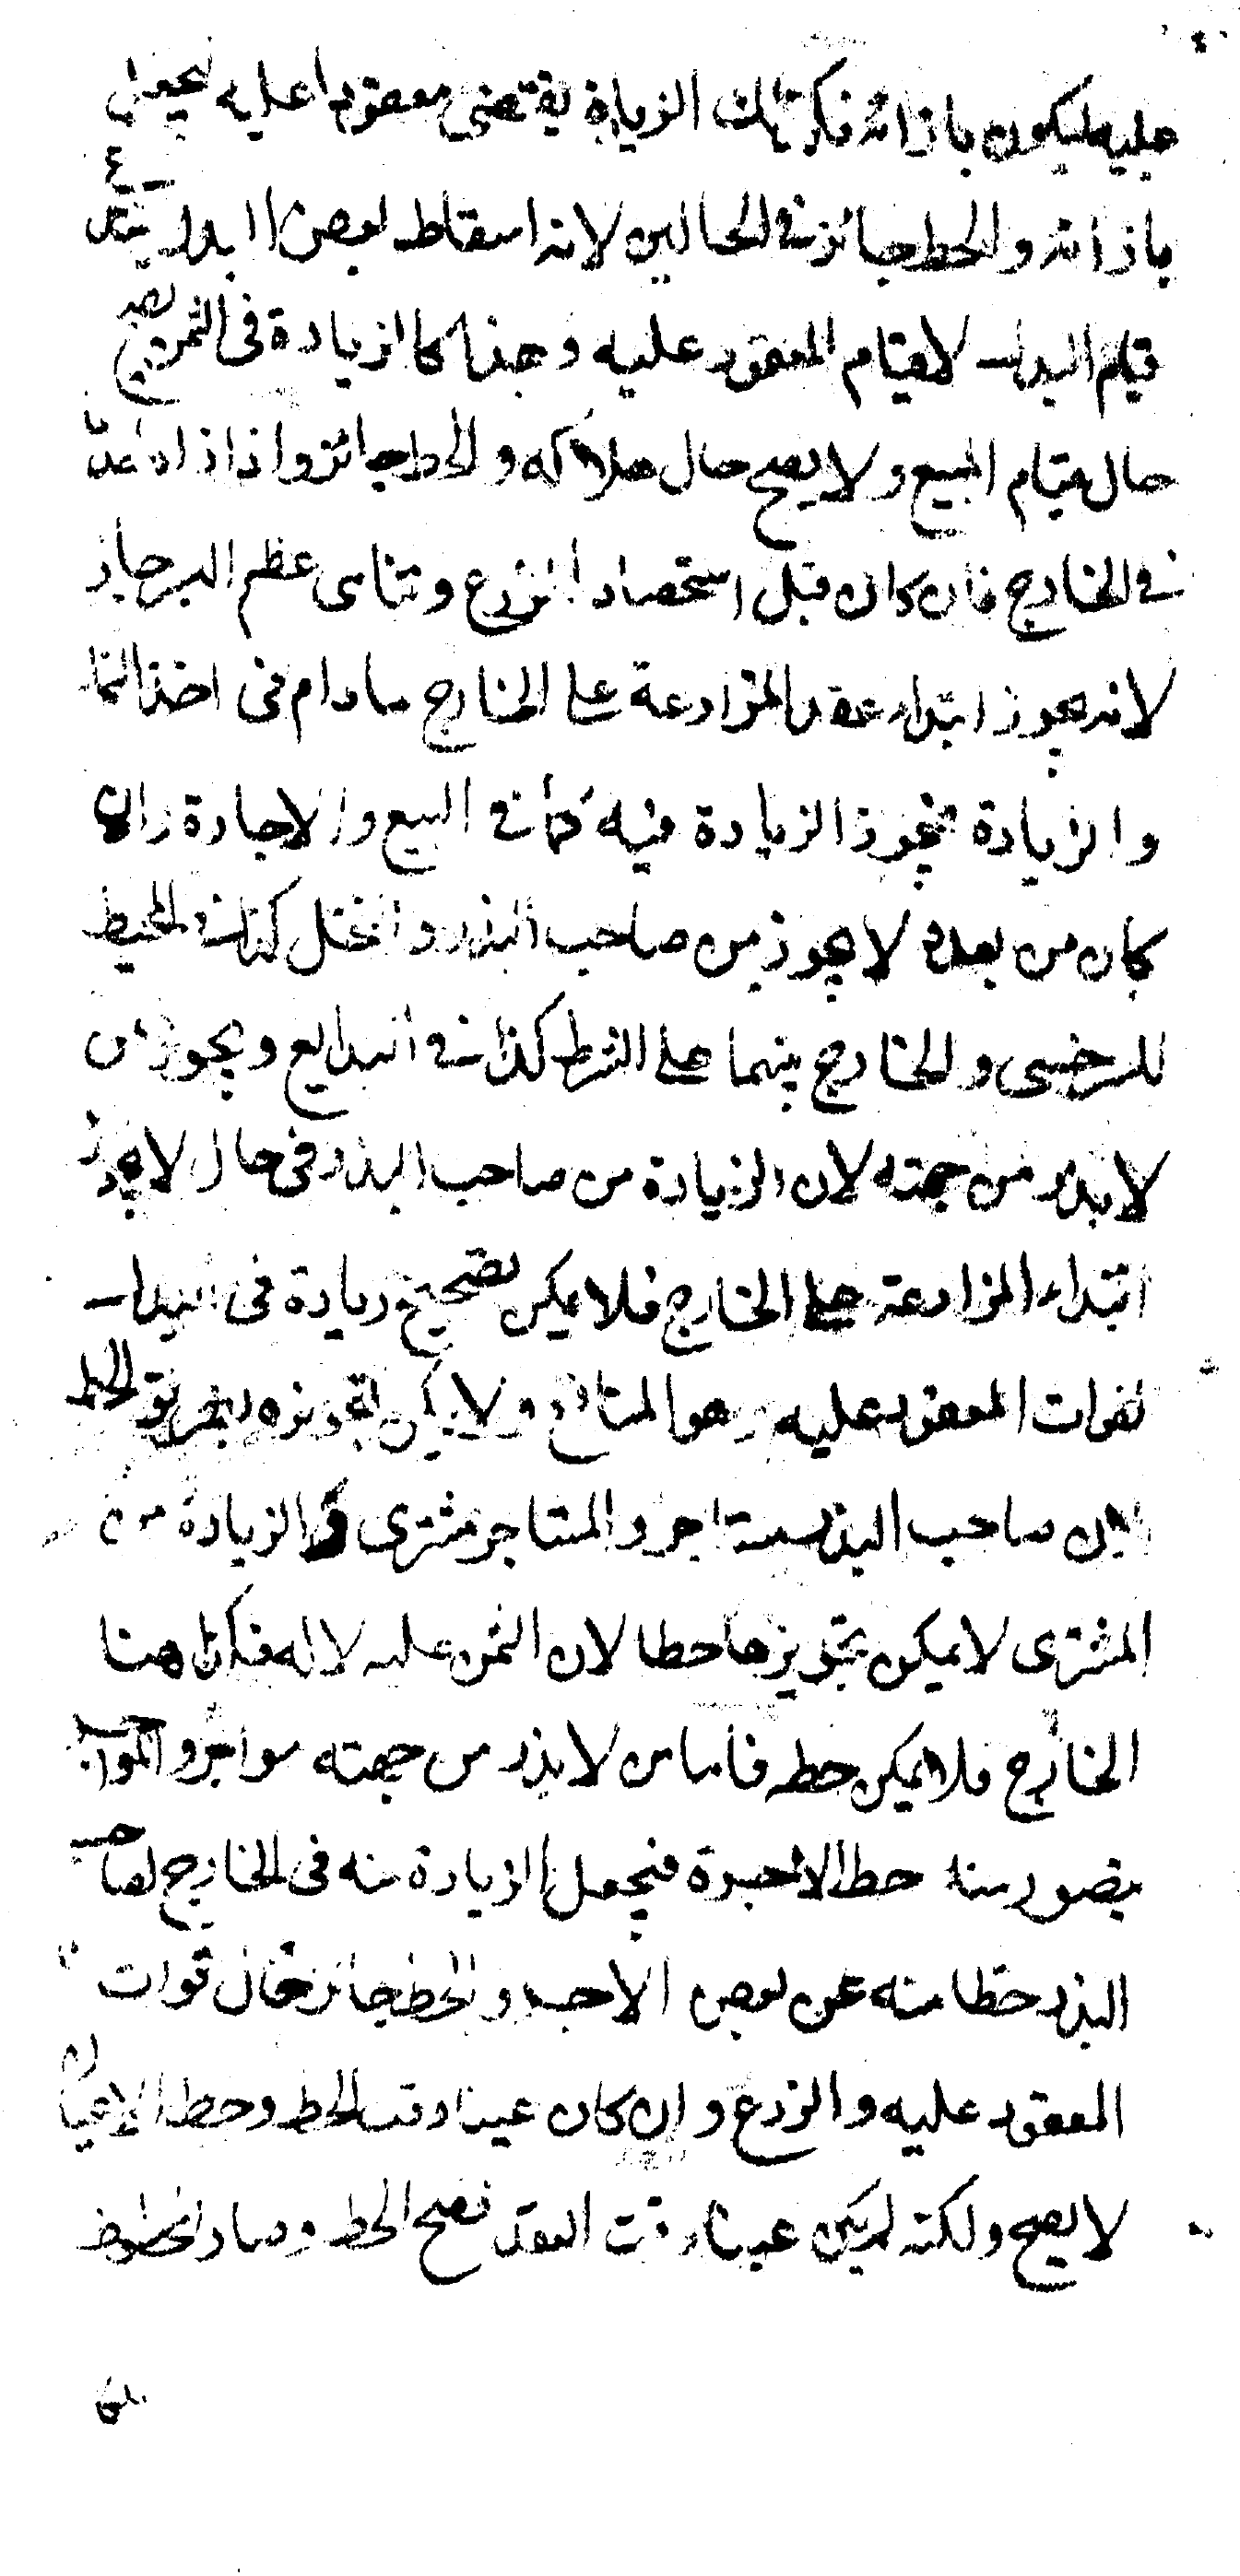 عليه ليكون بازائه فكذلك الزيادة يقتضى معقودا عليه ليجعل
بازائه والحط جائز فى الحالين لانه اسقاط لبعض البدل
قيام البدل لا قيام المعقود عليه وهذا كالزيادة فى الثمن يصح
حال قيام المبيع ولا يصح حال هلاكه والحط جائز واذا زاد
فى الخارج فان كان قبل استحصاد الزرع وتناهى عظم البر جاز
لانه يجوز ابتداء عقد المزارعة على الخارج مادام فى اخذ النما
والزيادة فيجوز الزيادة فيه كما فى البيع والاجارة وان
كان من بعده لا يجوز من صاحب البذر والنخل كذا فى المحيط
للسرخسى والخارج بينهما على الشرط كذا فى البدايع ويجوز من
لا بذر من جهته لان الزيادة من صاحب البذر فى حال لا يجوز
ابتداء المزارعة على الخارج فلا يمكن تصحيح زيادة فى البدل
لفوات المعقود عليه وهو المنافع ولا يمكن تجويزه بطريق الحط
لان صاحب البذر مستاجر والمستاجر مشترى والزيادة من
المشترى لا يمكن تجويزها حطا لان الثمن عليه لا له فكذا هنا
الخارج فلا يمكن حطه فاما من لا بذر من جهته مواجر والمواجر
يتصور منه حط الاجرة فيجعل الزيادة منه فى الخارج لصاحب
البذر حطا منه عن بعض الاجر والحط جائز حال فوات
المعقود عليه والزرع وان كان عينا وقت الحط وحط الاعيان
لا يصح ولكنه لم يكن عينا وقت العقد فصح الحط وصار المحطوط